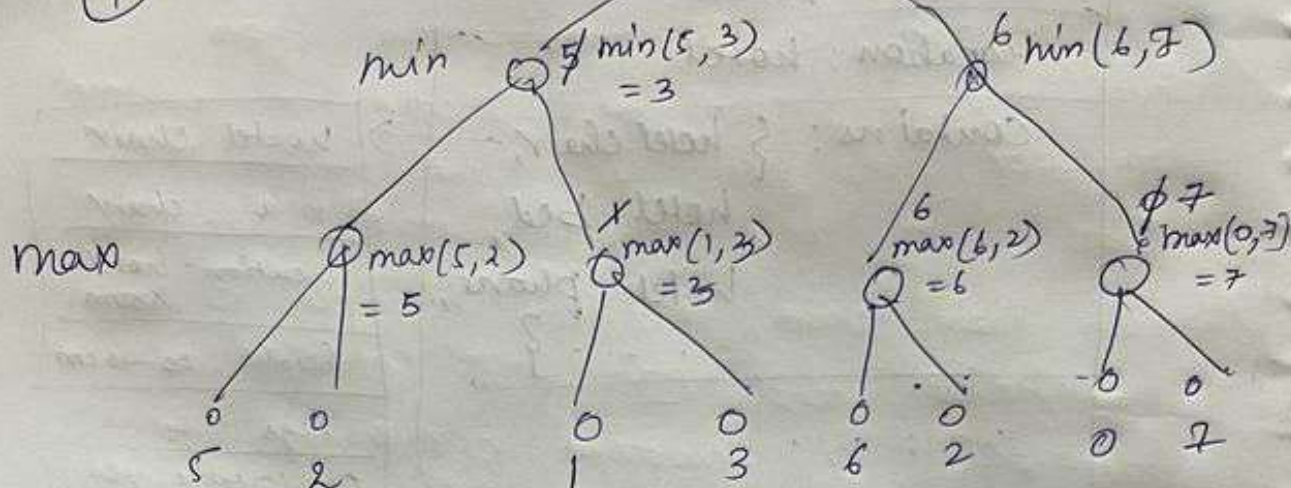 min
5 min(5,3)
= 3
6 min(6,7)
max
max(5,2)
= 5
1
max(1,3)
= 3
6
max(6,2)
= 6
0 7
max(0,7)
= 7
5 2 1 3 6 2 0 7